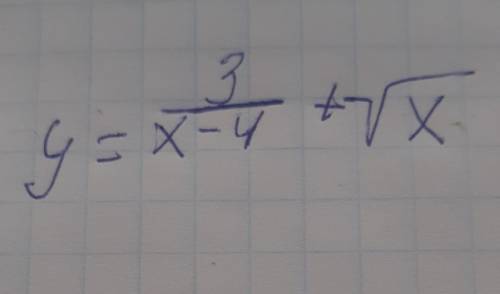 y = 3/(x-4) + √x